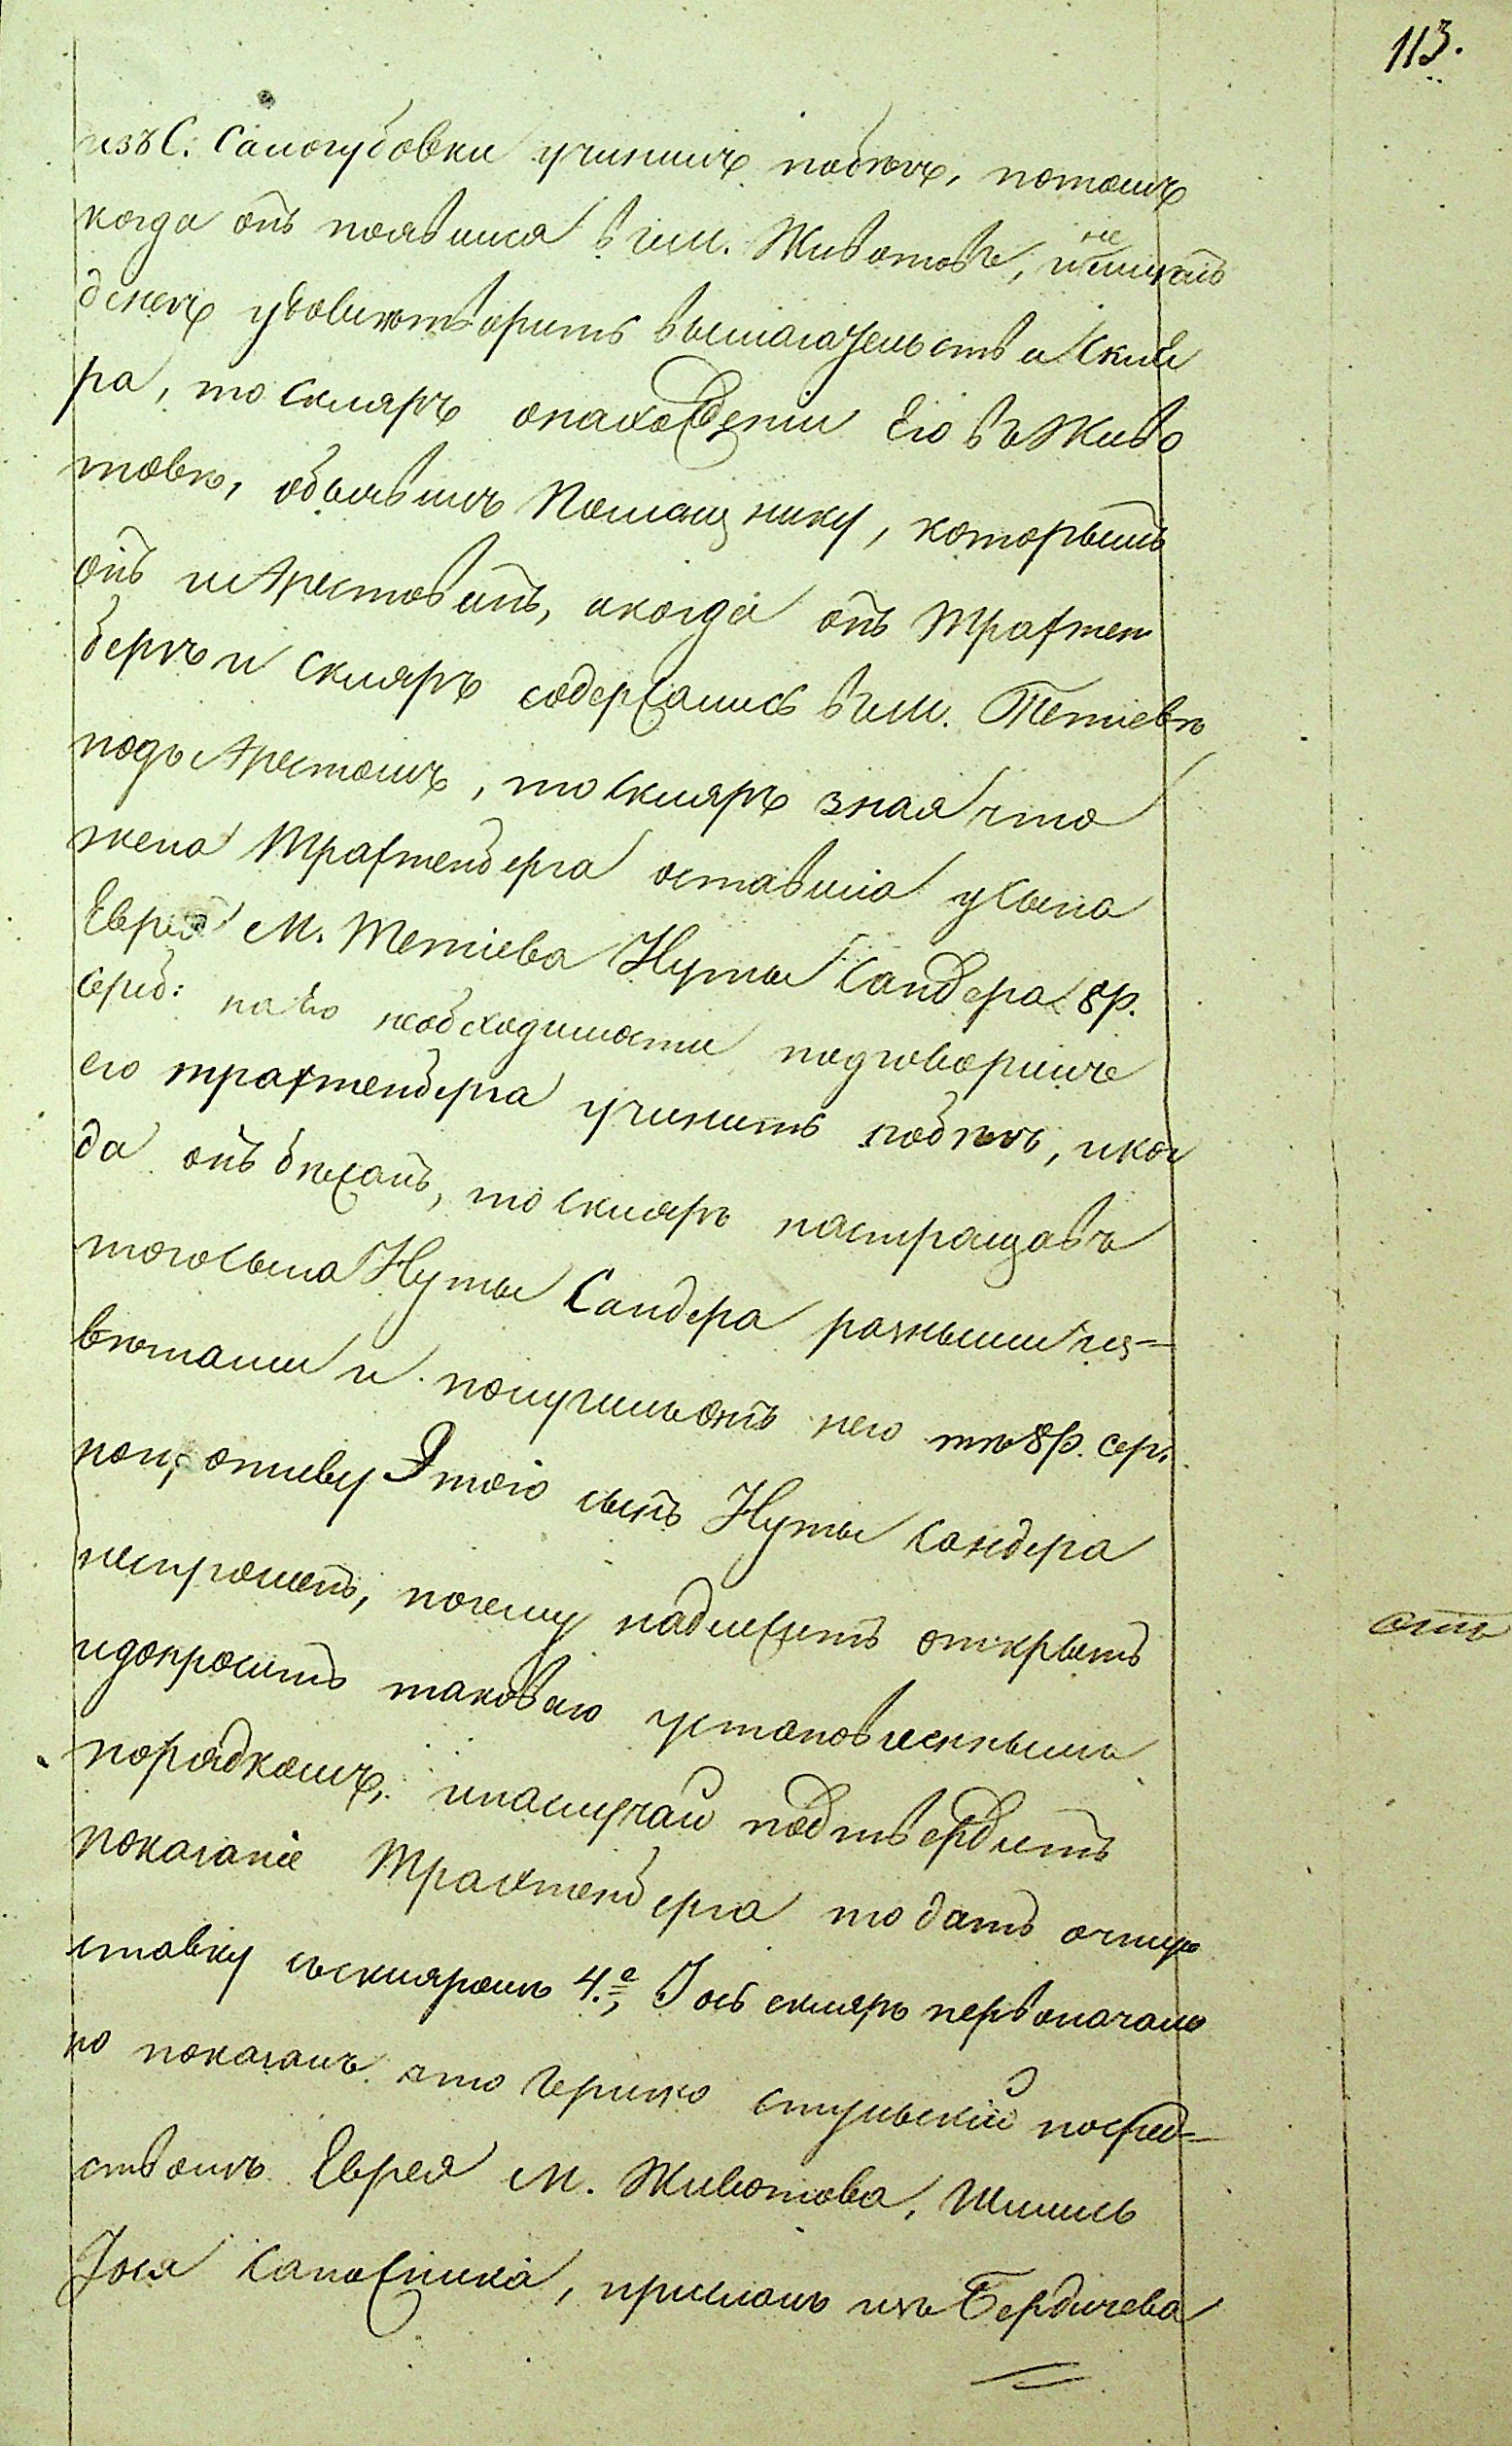 113.
изъ С. Самогубовки учинилъ побегъ, потомъ
когда онъ появился въ м. Животове, и не имелъ
денегъ удовлетворить вымогательства Скля
ра, то Скляръ о нахождении Его въ Живо
товѣ, объявилъ Помощнику, которымъ
онъ и Арестованъ, а когда онъ Трахтен
бергъ и Скляръ содержались въ м. Тетіевѣ
подъ Арестомъ, то Скляръ зная что
жена Трахтенберга оставила у сына
Еврея М. Тетіева Нуты Сандера 8 р.
сереб: на его необходимости подговорилъ
его трахтенберга учинить побѣгъ, и ког
да онъ бѣжалъ, то Скляръ настращавъ
того сына Нуты Сандера разными из-
вѣтами и получилъ отъ него тѣ 8 р. сер.
но, отиву Этого сынъ Нуты Сандера
неспрошенъ, почему надлежитъ открыть
и допросить таковаго установленнымъ
порядкомъ, и на случай подтвердитъ
показаніе Трахтенберга то дать очную
ставку съ скляромъ 4.е, Іось скляръ первоначаль
но показалъ что Гершко Стульскій посред-
ствомъ Еврея М. Животова, Шмиль
Іося Сапожника, прислалъ изъ Бердичева
отъ